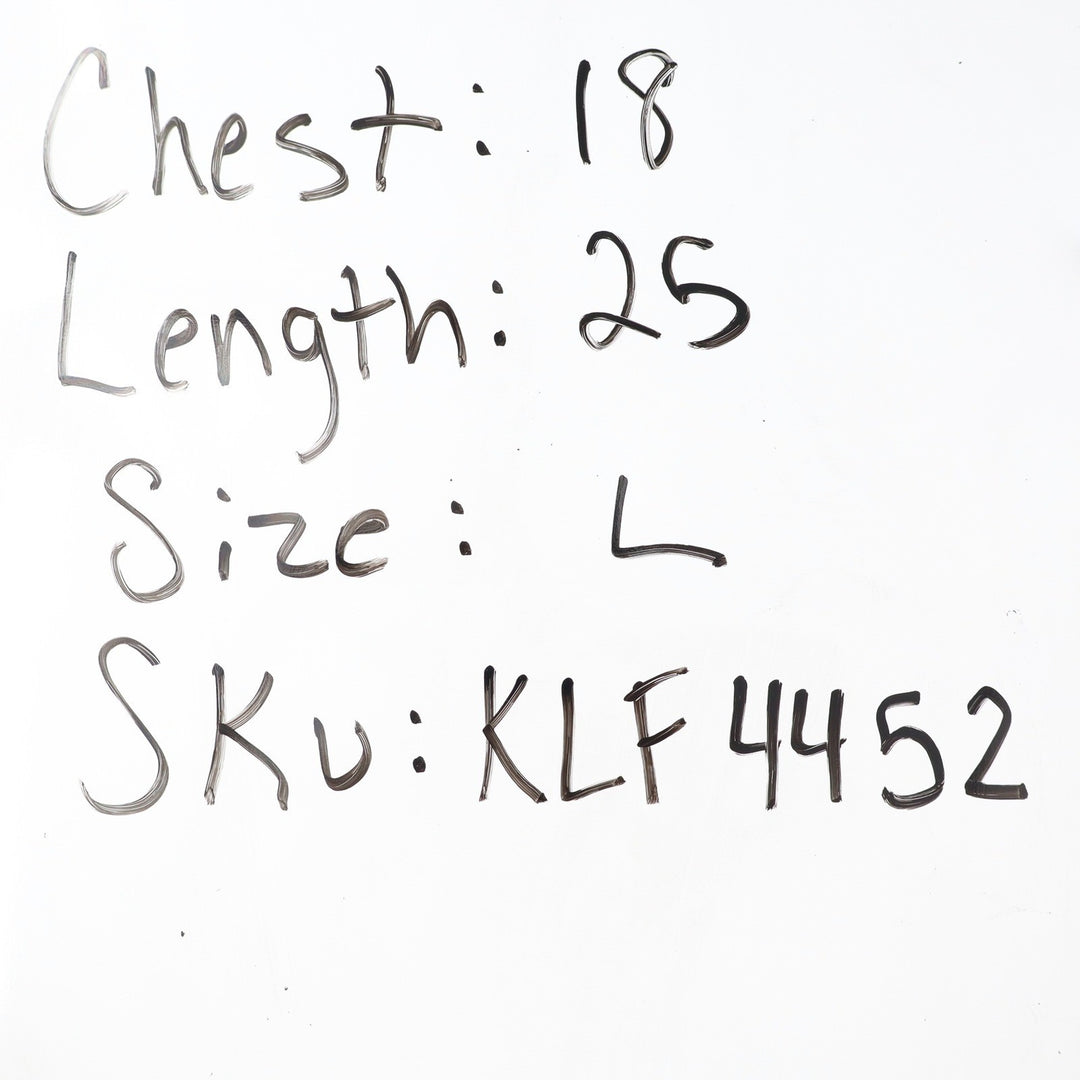 Chest: 18
Length: 25
Size: L
SKU: KLF4452